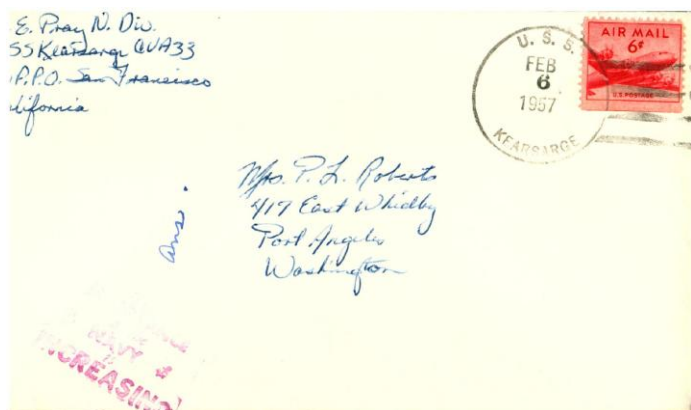 E. Pray N. Div.
SS Kearsarge CVA33
F.P.O. San Francisco
alifornia
U. S. S.
FEB
6
1957
KEARSARGE
AIR MAIL
6¢
U.S. POSTAGE
Mrs. P. L. Roberts
417 East Whidby
Port Angeles
Washington
ans.
NAVY
INCREASING